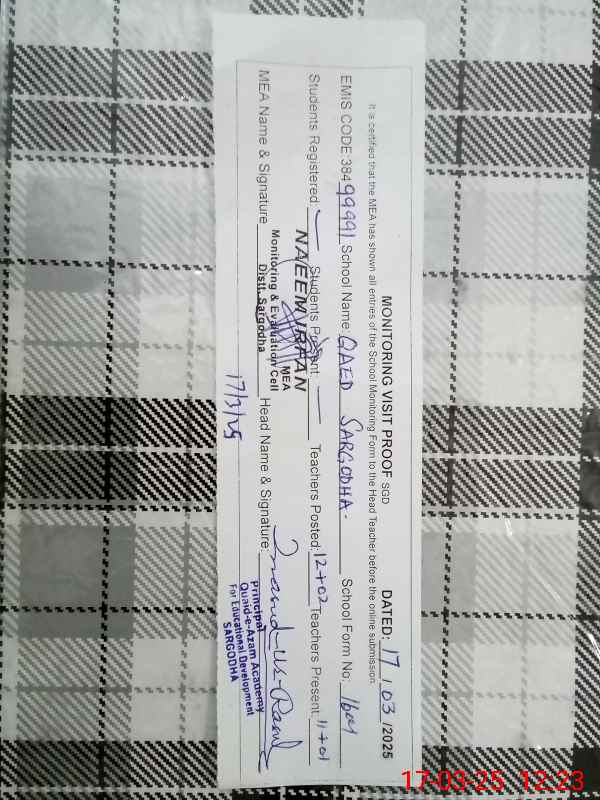 MONITORING VISIT PROOF SGD DATED: 17 / 03 /2025
It is certified that the MEA has shown all entries of the School Monitoring Form to the Head Teacher before the online submission.
EMIS CODE 384 99991 School Name: QAED SARGODHA. School Form No:
Students Registered: — Students Present: — Teachers Posted: 12+02 Teachers Present: 11+01
MEA Name & Signature Head Name & Signature:
NAEEM IRFAN
MEA
Monitoring & Evaluation Cell
Distt. Sargodha
17/3/25
Principal
Quaid-e-Azam Academy
For Educational Development
SARGODHA
17-03-25 12:23